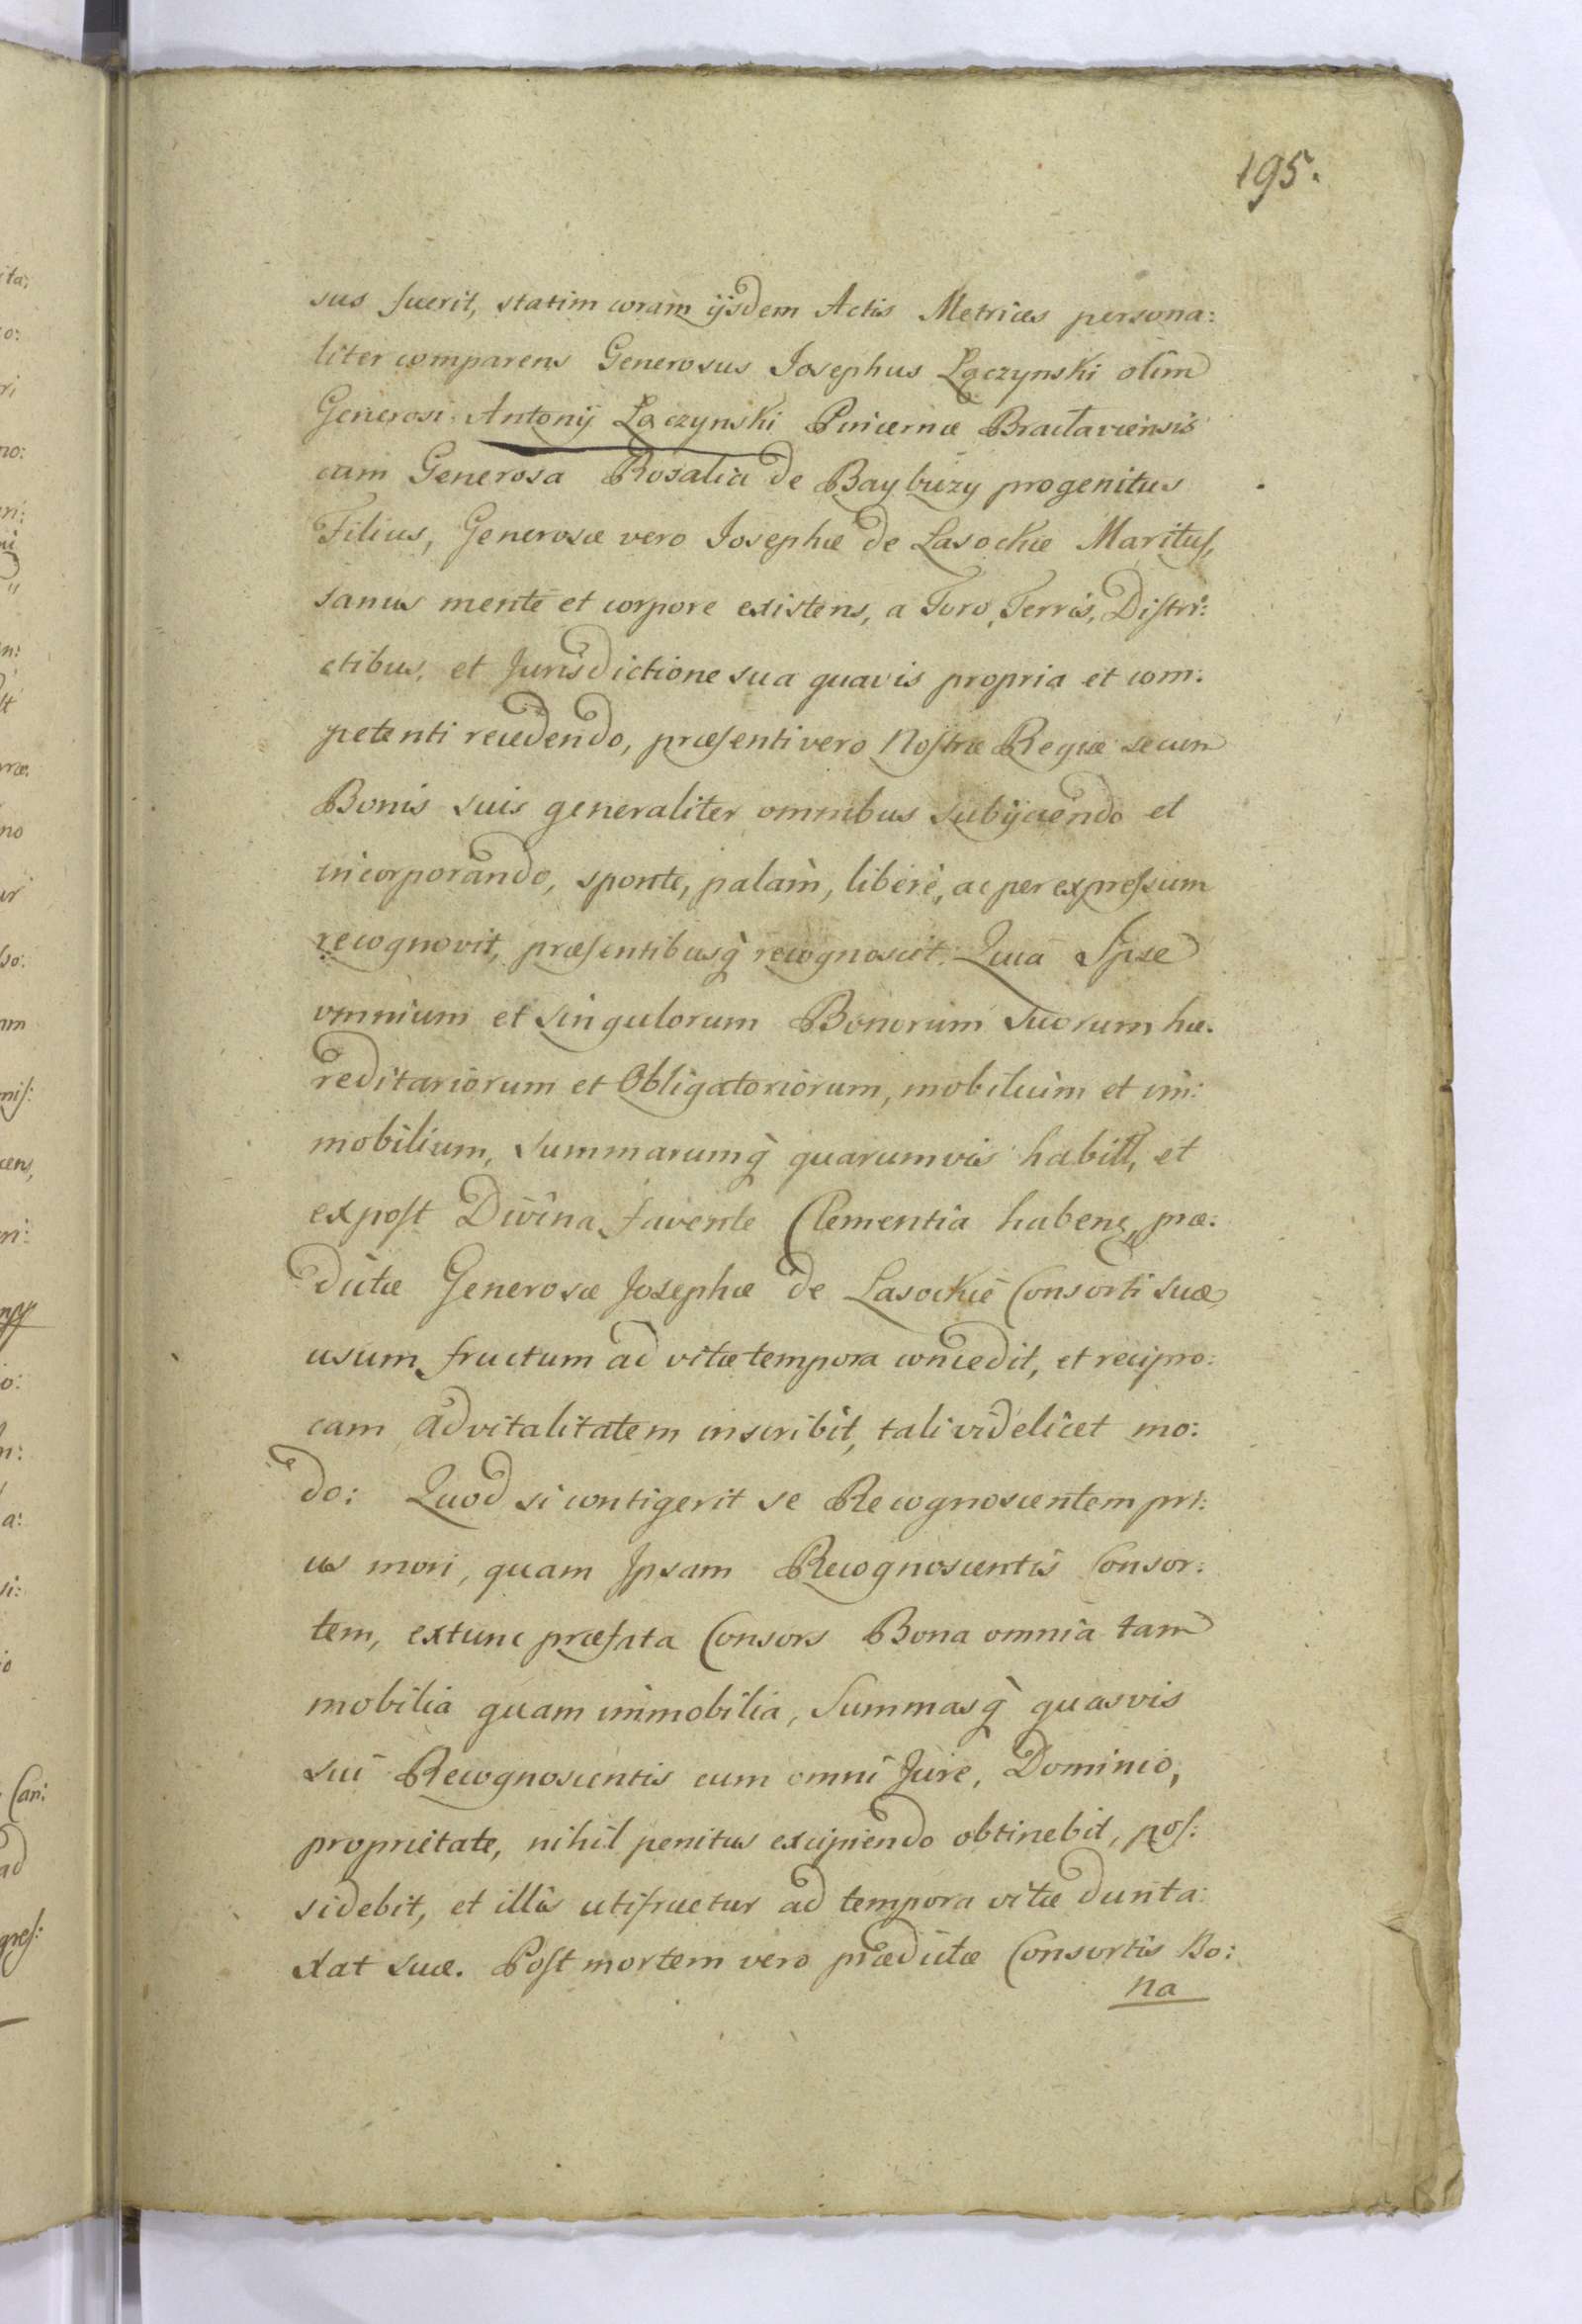 195.
sus fuerit, statim coram ijsdem Actis Metrices persona:
liter comparens Generosus Josephus Łączynski olim
Generosi Antonij Łączynski Pincernæ Bractaviensis
cum Generosa Rosalia de Baybuzy progenitus
Filius, Generosæ vero Josephæ de Lasockie Maritus,
sanus mente et corpore existens, a Foro, Terris, Distri:
ctibus, et Jurisdictione sua quavis propria et com:
petenti recedendo, præsenti vero Nostræ Regiæ se cum
Bonis suis generaliter omnibus subijciendo et
incorporando, sponte, palàm, liberè, ac per expressum
recognovit, præsentibusq̀ recognoscit: Quia Ipse
omnium et singulorum Bonorum suorum hæ:
reditariorum et Obligatoriorum, mobilium et im:
mobilium, Summarumq̀ quarumvis habitt, et
expost Divina favente Clementia haben, præ:
dictæ Generosæ Josephæ de Lasockie Consorti suæ
usum fructum ad vitæ tempora concedit, et recipro:
cam advitalitatem inscribit, tali videlicet mo:
do: Quod si contigerit se Recognoscentem pri:
us mori, quam Ipsam Recognoscentis Consor:
tem, extunc præfata Consors Bona omnia tam
mobilia quam immobilia, Summasq̀ quasvis
sui Recognoscentis cum omni Jure, Dominio,
proprietate, nihil penitus excipiendo obtinebit, pos:
sidebit, et illis utifruetur ad tempora vitæ dunta:
xat suæ. Post mortem vero prædictæ Consortis Bo:
na